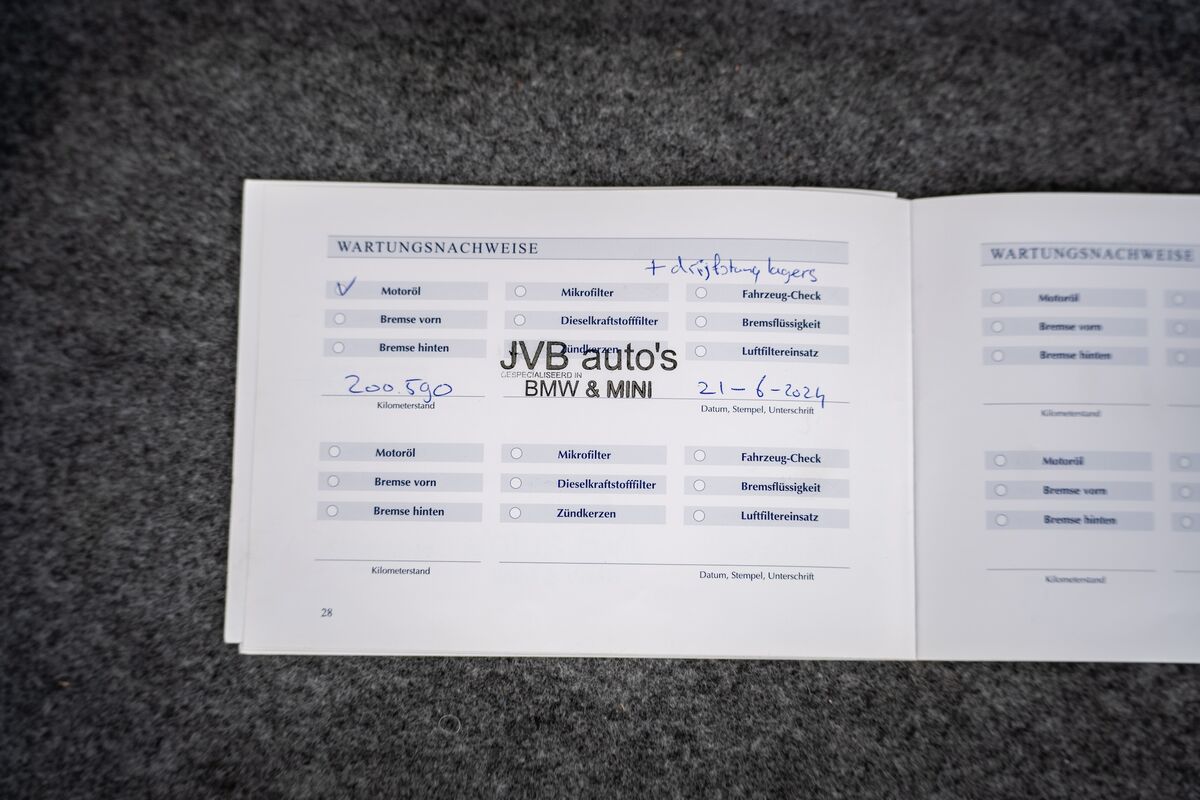 WARTUNGSNACHWEISE
+ drijfstang lagers
Motoröl Mikrofilter Fahrzeug-Check
Bremse vorn Dieselkraftstofffilter Bremsflüssigkeit
Bremse hinten Zündkerzen Luftfiltereinsatz
JVB auto's
GESPECIALISEERD IN
BMW & MINI
200.590 21-6-2024
Kilometerstand Datum, Stempel, Unterschrift
Motoröl Mikrofilter Fahrzeug-Check
Bremse vorn Dieselkraftstofffilter Bremsflüssigkeit
Bremse hinten Zündkerzen Luftfiltereinsatz
Kilometerstand Datum, Stempel, Unterschrift
28
WARTUNGSNACHWEISE
Motoröl
Bremse vorn
Bremse hinten
Kilometerstand
Motoröl
Bremse vorn
Bremse hinten
Kilometerstand